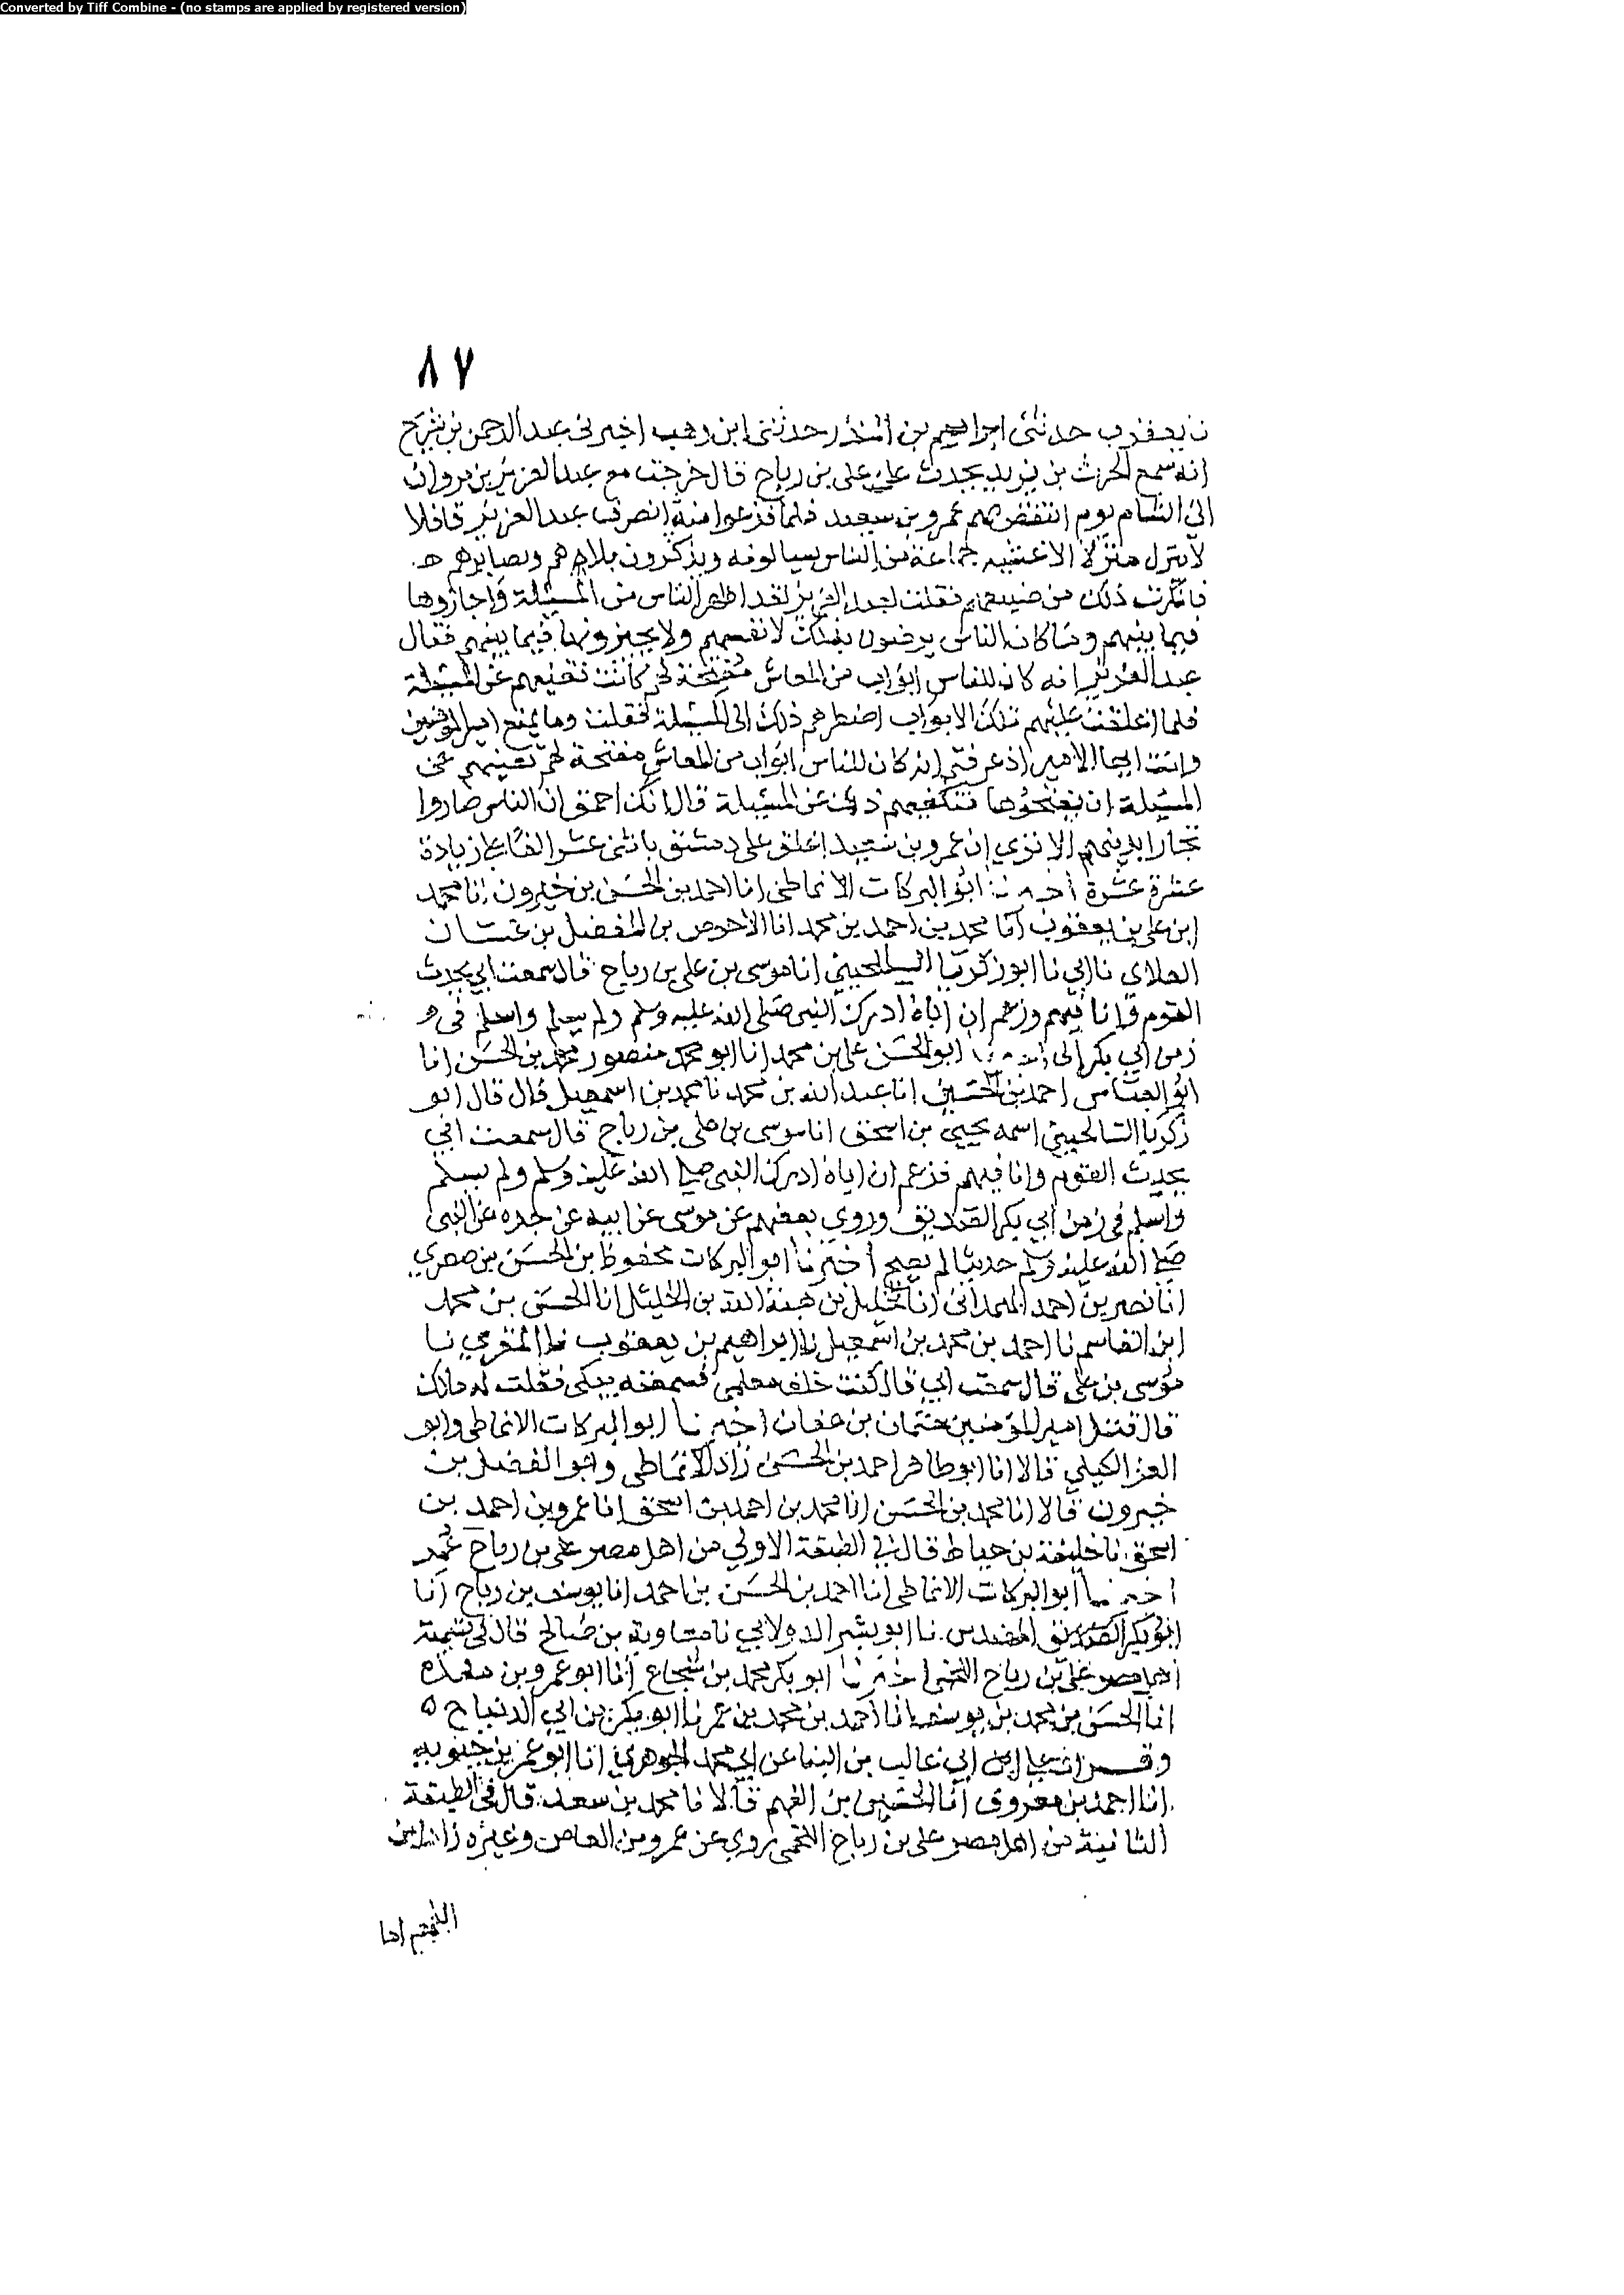 Converted by Tiff Combine - (no stamps are applied by registered version)
٨٧
نا يعقوب حدثنى ابراهيم بن المنذر حدثنى ابن وهب اخبرنى عبد الرحمن بن شريح
انه سمع الحرث بن يزيد يحدث عن على بن رباح قال خرجت مع عبد العزيز بن مروان
الى الشام يوم انتقض بهم عمرو بن سعيد فلما فرغوا منه انصرف عبد العزيز قافلا
لا ينزل منزلا الا غشيه جماعة من الناس يسالونه ويذكرون بلاهم ومصايبهم
فانكرت ذلك من صنيعهم فقلت لعبد العزيز لقد اظهر الناس من المسئلة واجازوها
فيما بينهم وما كان الناس يرضون بذلك لانفسهم ولا يجيزونها فيما بينهم فقال
عبد العزيز انه كان للناس ابواب من المعاش مفتحة لهم كانت تغنيهم عن المسئلة
فلما اغلقت عليهم تلك الابواب اضطرهم ذلك الى المسئلة فقلت وما يمنع امير المومنين
وانت ايها الامير اذ عرفتم انه كان للناس ابواب من المعاش مفتحة لهم تغنيهم عن
المسئلة ان تفتحوها فتكفيهم ذلك عن المسئلة قال انك احمق ان الناس صاروا
تجارا بدينهم الا ترى ان عمرو بن سعيد اغلق على دمشق باثنى عشر الفا على زيادة
عشرة عشرة ابو البركات الانماطى انا احمد بن الحسن بن خيرون انا محمد
ابن على بن يعقوب انا محمد بن احمد بن محمد انا الاحوص بن المفضل بن غسان
الغلابي نا ابي نا ابو زكريا السيلحيني انا موسى بن على بن رباح قال سمعت ابي يحدث
القوم وانا فيهم وزعم ان اباه ادرك النبى صلى الله عليه وسلم ولم يسلم واسلم فى
زمن ابي بكر ابو الحسن على بن محمد انا ابو محمد منصور محمد بن الحسن انا
ابو العباس احمد بن الحسين انا عبد الله بن محمد نا محمد بن اسمعيل قال قال ابو
زكريا السالحيني اسمه يحيى بن اسحق انا موسى بن على بن رباح قال سمعت ابي
يحدث القوم وانا فيهم فزعم ان اباه ادرك النبى صلى الله عليه وسلم ولم يسلم
واسلم فى زمن ابي بكر الصديق وروى بعضهم عن موسى عن ابيه عن جده عن النبى
صلى الله عليه وسلم حديثا لم يصح اخبرنا ابو البركات محفوظ بن الحسن بن صصري
انا نصر بن احمد الهمدانى انا الخليل بن هبة الله بن الخليل انا الحسن بن محمد
ابن القاسم نا احمد بن محمد بن اسمعيل نا ابراهيم بن يعقوب نا المقري نا
موسى بن على قال سمعت ابي قال كنت خلف معلمي فسمعته يبكى فقلت له مالك
قال قتل امير المؤمنين عثمان بن عفان اخبرنا ابو البركات الانماطى وابو
العز الكيلي قالا انا ابو طاهر احمد بن الحسن زاد الانماطى وابو الفضل بن
خيرون قالا انا محمد بن الحسن انا محمد بن احمد بن اسحق انا عمرو بن احمد بن
اسحق نا خليفة بن خياط قال فى الطبقة الاولى من اهل مصر على بن رباح
اخبرنا ابو البركات الانماطى انا احمد بن الحسن بن احمد انا يوسف بن رباح انا
ابو بكر المهندس نا ابو بشر الدولابي نا معاوية بن صالح قال فى تسمية
اهل مصر على بن رباح اللخمى اخبرنا ابو بكر محمد بن شجاع انا ابو عمرو بن منده
انا الحسن بن محمد بن يوسف انا احمد بن محمد بن عمر نا ابو بكر بن ابي الدنيا ح
وقرات على ابن ابي غالب بن البنا عن ابي محمد الجوهري انا ابو عمر بن حيويه
انا احمد بن معروف انا الحسين بن الفهم قالا نا محمد بن سعد قال فى الطبقة
الثانية من اهل مصر على بن رباح اللخمى روى عن عمرو بن العاص وغيره زاد ابن
الفهم